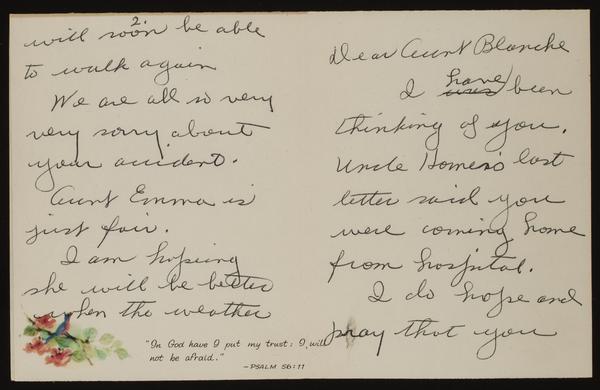 Dear Aunt Blanche
I have been
thinking of you.
Uncle Homer's last
letter said you
were coming home
from hospital.
I do hope and
pray that you
2.
will soon be able
to walk again
We are all so very
very sorry about
your accident.
Aunt Emma is
just fair.
I am hopeing
she will be better
when the weather
"In God have I put my trust: I will
not be afraid."
—PSALM 56:11